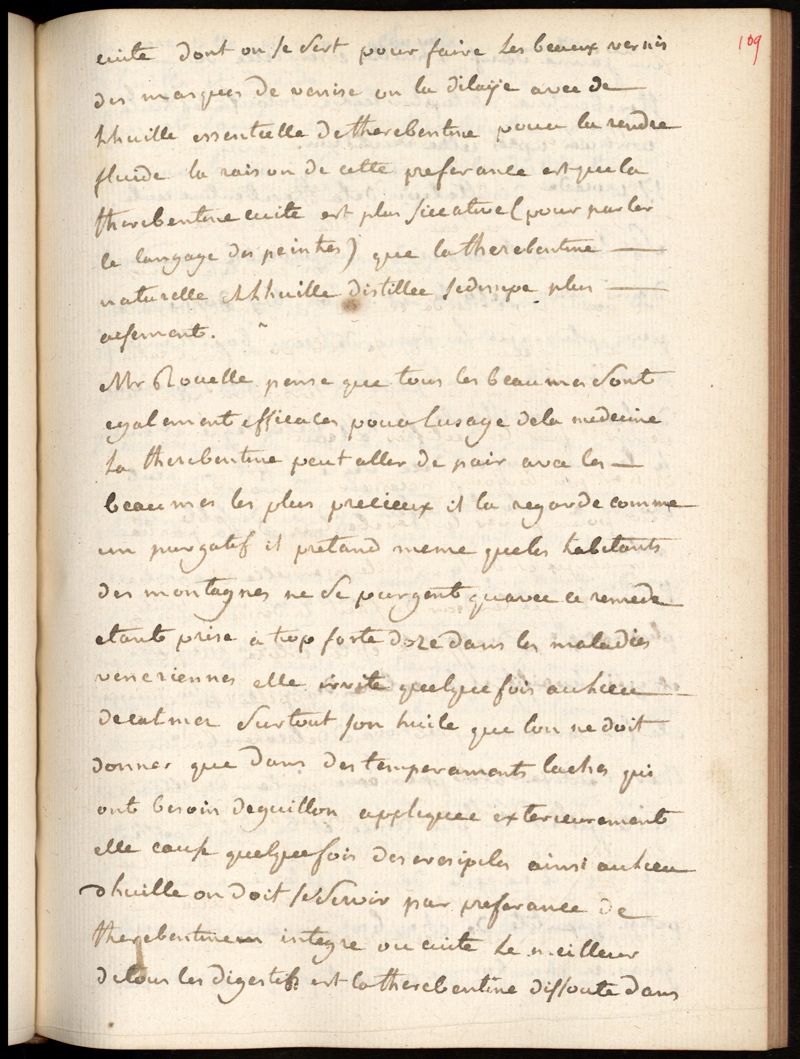 109
cuite dont on se sert pour faire les beaux vernis
des masques de venise on la dilaÿe avec de
lhuille essentielle de therebentine pour la rendre
fluide la raison de cette preferance est que la
therebentine cuite est plus siccative (pour parler
le langage des peintres) que la therebentine —
naturelle et lhuille distillee se dissipe plus —
aisement.
Mr Rouelle pense que tous les beaumes sont
egalement efficaces pour lusage de la medecine
la therebentine peut aller de pair avec les —
beaumes les plus precieux il la regarde comme
un purgatif il pretand meme que les habitants
des montagnes ne se purgent quavec ce remede
etant prise a trop forte doze dans les maladies
veneriennes elle irrite quelque fois au lieu
de calmer surtout son huile que lon ne doit
donner que dans des temperaments laches qui
ont besoin deguillon appliquee exterieurement
elle cause quelque fois des eresipeles ainsi au lieu
dhuille on doit se servir par preferance de
therebentine integre ou cuite le meilleur
de tous les digestifs est la therebentine dissoute dans